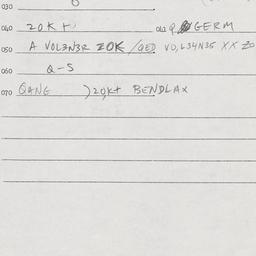 030
040 20K+ 042 9 GERM
050 A VOL3N3R ZOK /QED VO,L34N35 XX ZO
060 Q-S
070 QANG )20K+ BENDLAX